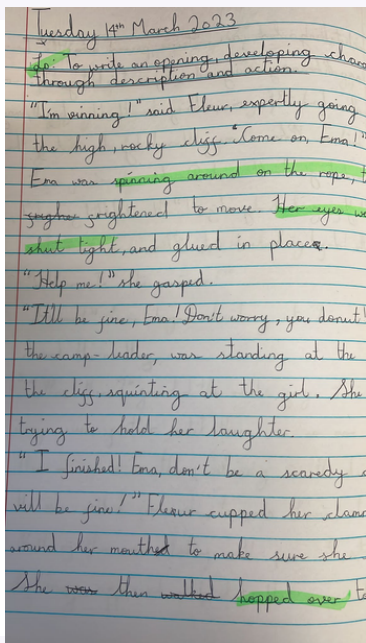 Tuesday 14th March 2023
Lo: To write an opening, developing chara
through description and action.
"I'm winning!" said Fleur, expertly going
the high, rocky cliff. "Come on, Ema!"
Ema was spinning around on the rope, t
frightened to move. Her eyes we
shut tight, and glued in place.
"Help me!" she gasped.
"It'll be fine, Ema! Don't worry, you donut!
the camp-leader, was standing at the
the cliff, squinting at the girl. She
trying to hold her laughter.
"I finished! Ema, don't be a scaredy c
will be fine!" Fleur cupped her clam
around her mouth to make sure she
She then hopped over t